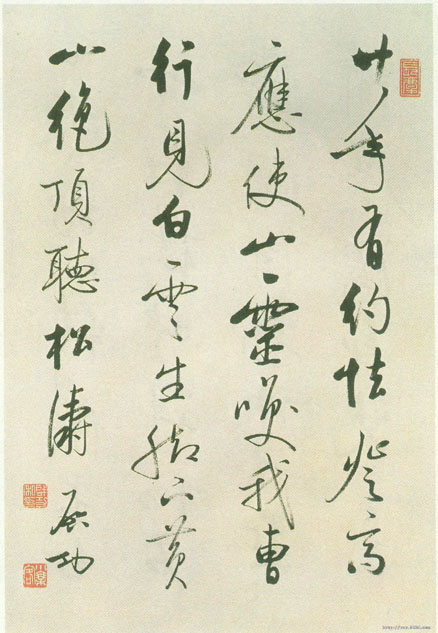 廿年有約怯登高
應使山靈嘆我曹
行見白雲生腳下黃
山絕頂聽松濤 启功